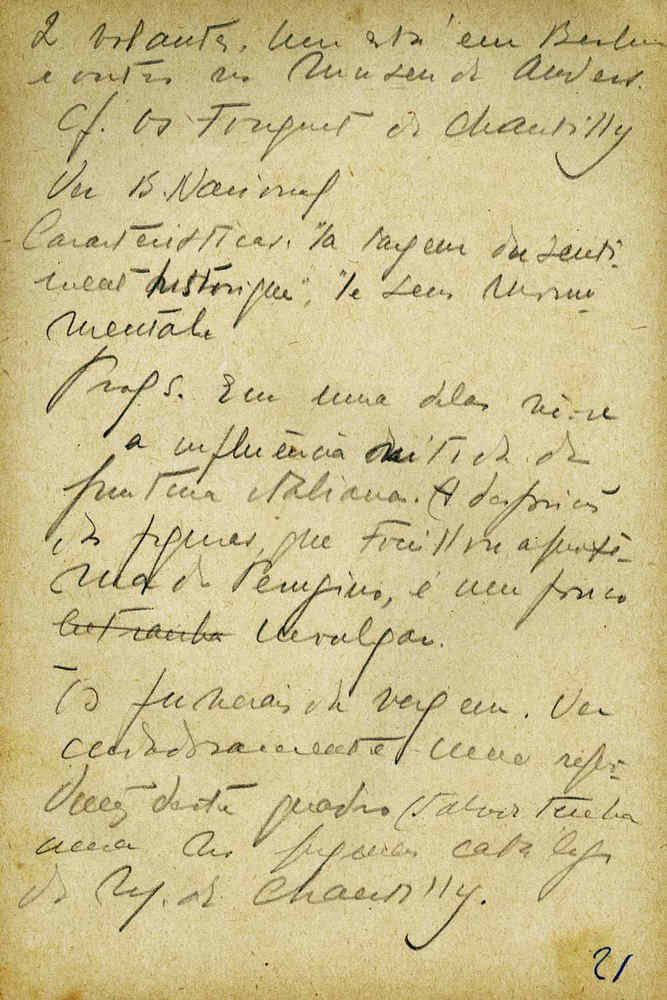 2 volantes. Um está em Berlim
e outro no Museu de Anvers.
Cf. os Fouquet de Chantilly
Ver B. Nacional
Características: "la
du senti-
ment historique", "le sens monu-
mental"
Profs. Em uma delas vê-se
a influência nitida da
pintura italiana. A disposição
das figuras, que Focillon aproxi-
ma do Perugino, é um pouco
invulgar.
Os funerais da virgem. Ver
cuidadosamente uma repro-
dução deste quadro (talvez tenha
uma no pequeno catálogo
do M. de Chantilly.
21